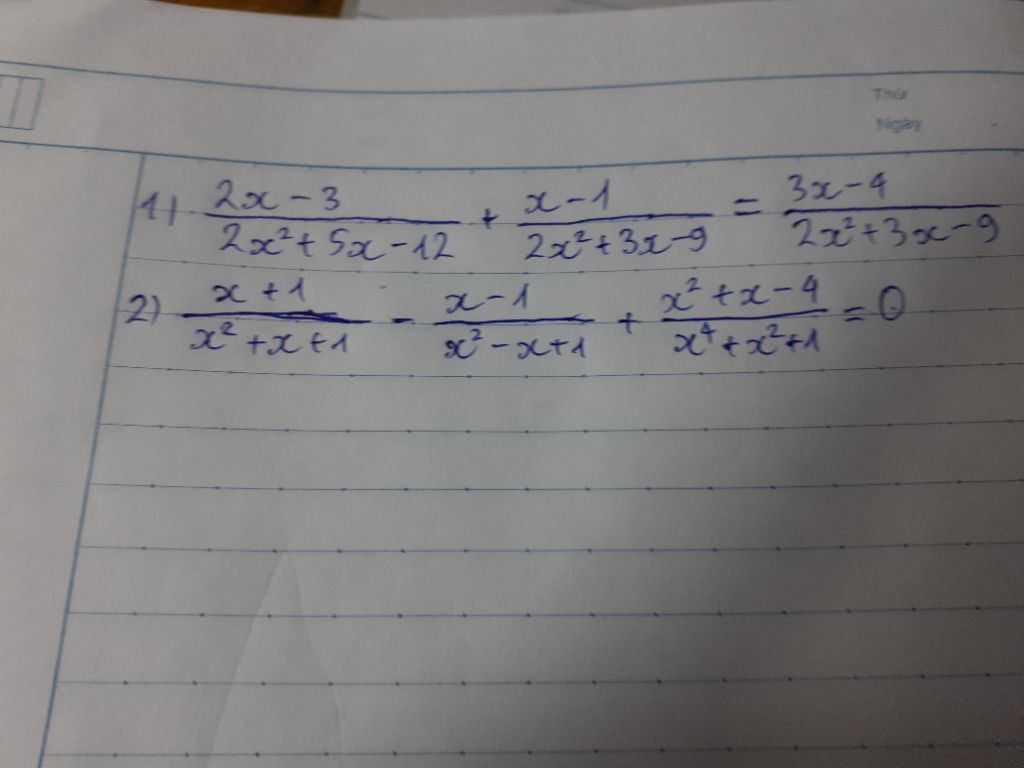 Thứ
Ngày
1) \frac{2x-3}{2x^2+5x-12} + \frac{x-1}{2x^2+3x-9} = \frac{3x-4}{2x^2+3x-9}
2) \frac{x+1}{x^2+x+1} - \frac{x-1}{x^2-x+1} + \frac{x^2+x-4}{x^4+x^2+1} = 0